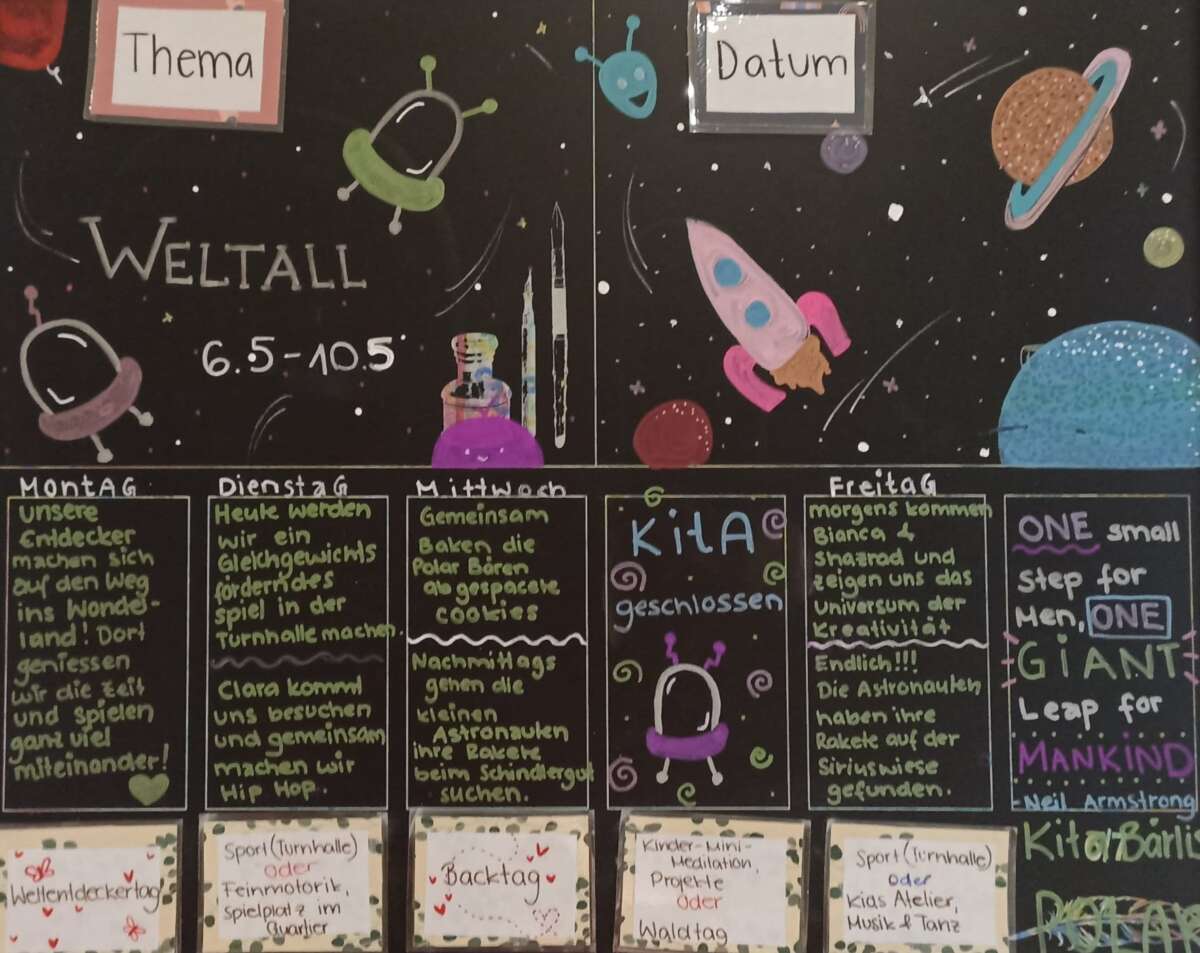 Thema
Datum
WELTALL
6.5-10.5
MontAG
unsere
Entdecker
machen sich
auf den Weg
ins Wonder-
land! Dort
geniessen
wir die Zeit
und spielen
ganz viel
miteinander!
DienstaG
Heute werden
wir ein
Gleichgewichts
förderndes
spiel in der
Turnhalle machen.
Clara kommt
uns besuchen
und gemeinsam
machen wir
Hip Hop.
Mittwoch
Gemeinsam
Baken die
Polar Bären
abgespacete
cookies
Nachmittags
gehen die
kleinen
Astronauten
ihre Rakete
beim Schindlergut
suchen.
KitA
geschlossen
FreitaG
morgens kommen
Bianca &
Shazrad und
zeigen uns das
universum der
Kreativität
Endlich!!!
Die Astronauten
haben ihre
Rakete auf der
Siriuswiese
gefunden.
ONE small
Step for
Men, ONE
GiANT
Leap for
MANKiND
-Neil Armstrong
Weltentdeckertag
Sport (Turnhalle)
oder
Feinmotorik,
Spielplatz im
Quartier
Backtag
Kinder-Mini-
Meditation,
Projekte
oder
Waldtag
Sport (Turnhalle)
oder
Kias Atelier,
Musik & Tanz
Kita Bärli
POLAR